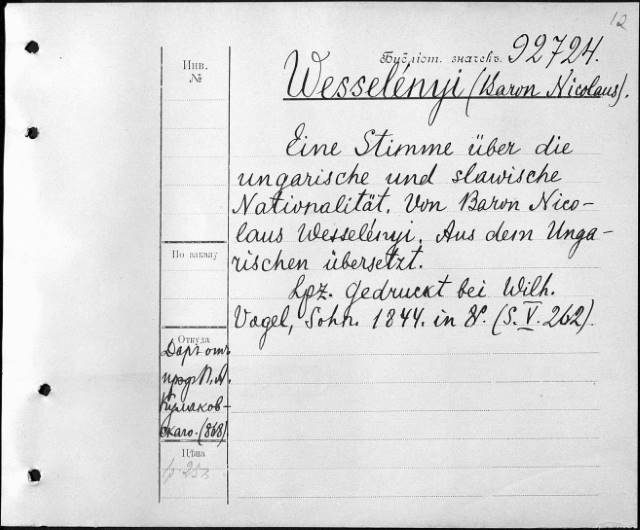 12
Библіот. значекъ. 92724.
Инв.
№
Wesselényi (Baron Nicolaus).
Eine Stimme über die
ungarische und slawische
Nationalität. Von Baron Nico-
laus Wesselényi. Aus dem Unga-
rischen übersetzt.
Lpz. Gedruckt bei Wilh.
Vogel, Sohn. 1844. in 8º. (S. V. 262).
По заказу
Откуда
Даръ отъ
проф. П. А.
Кулаков-
скаго. (868)
Цѣна
1р 25к